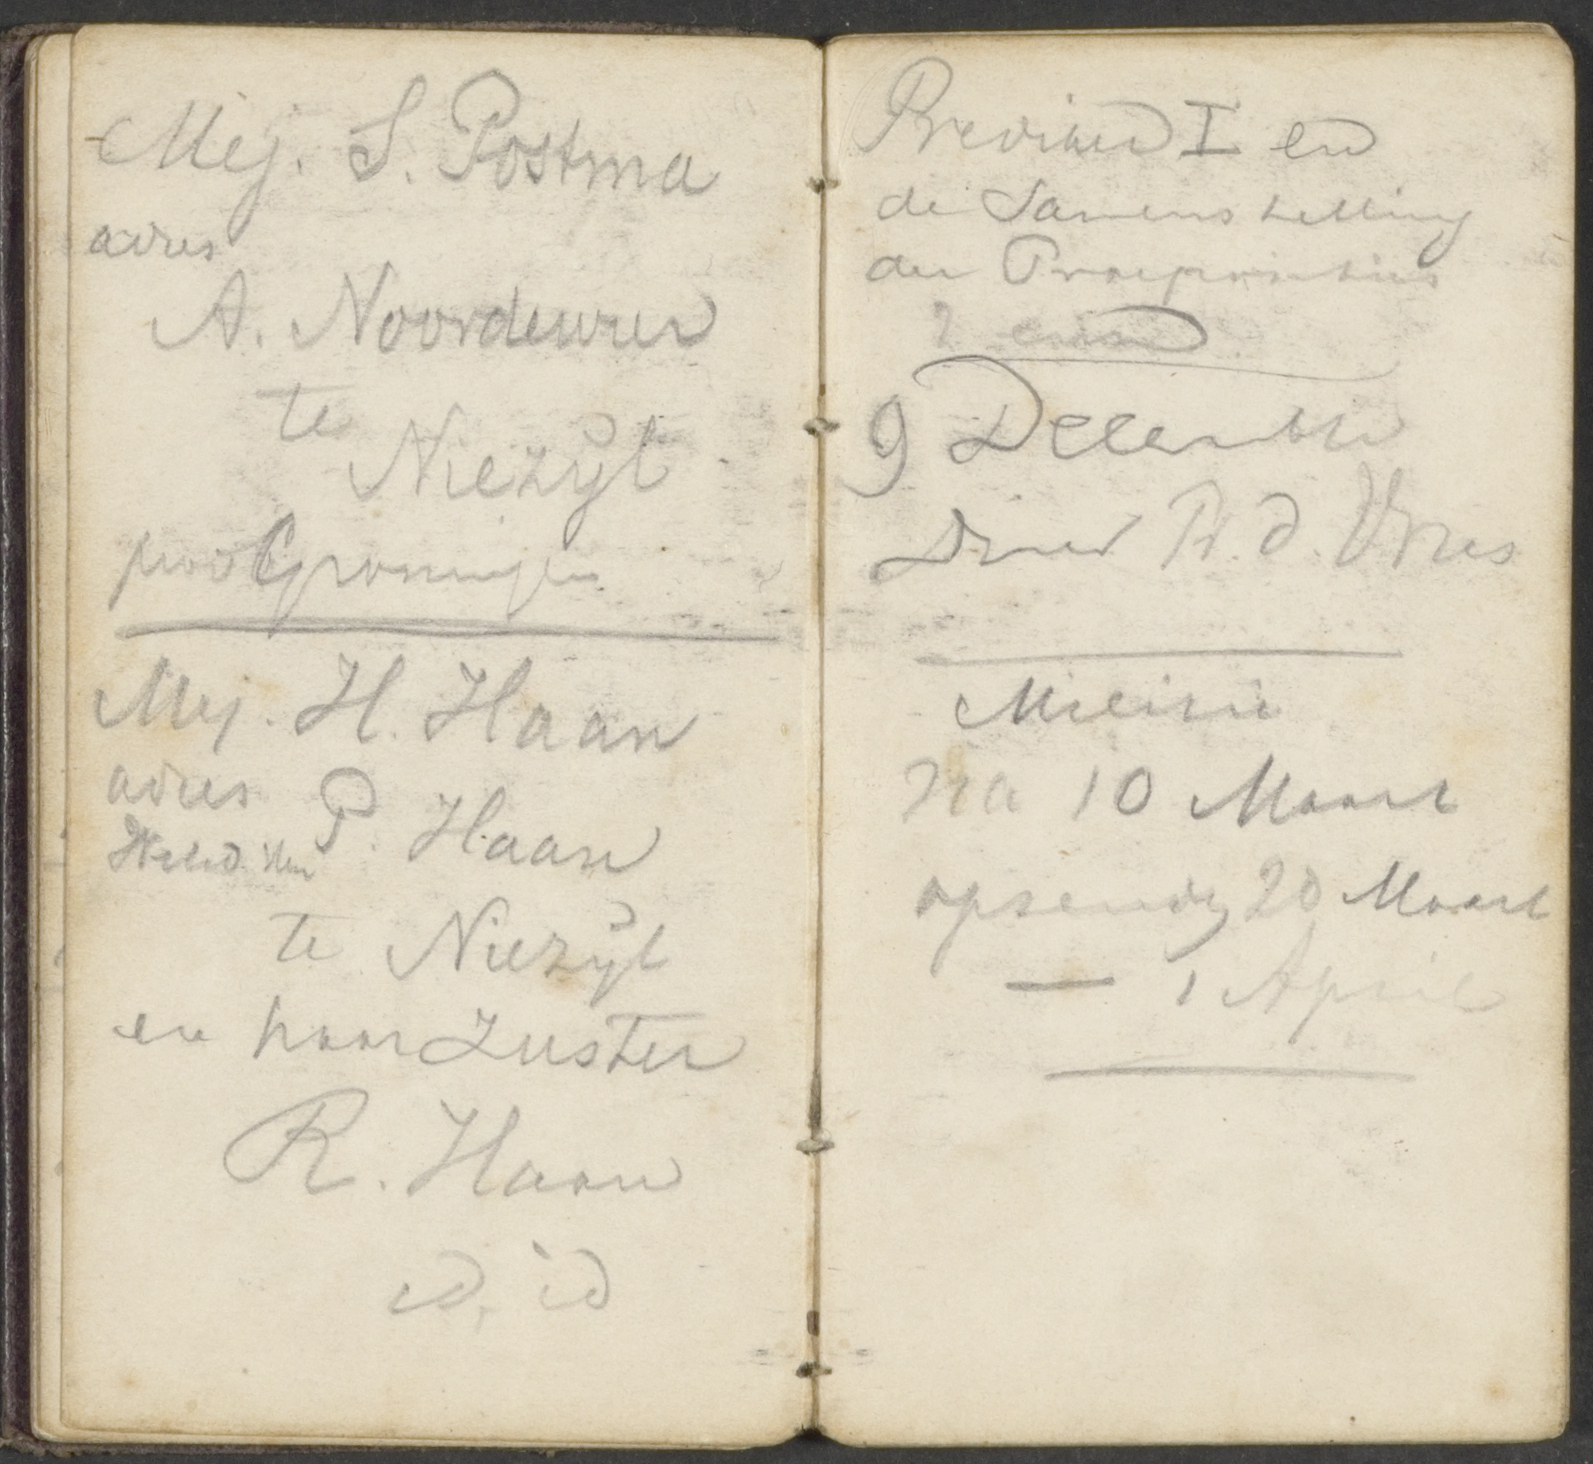 Mej. S. Postma
adres
A. Noordewier
te
Niezijl
prov Groningen
Mej. H. Haan
adres P. Haan
te Niezijl
en haar Zuster
R. Haan
id. id
I en
de Samenstelling
der
9 December
Diner Pr. d. Vries
Militie
na 10 Maart
opzending 20 Maart
— 1 April